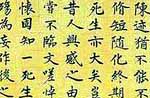 陳迹猶不
脩短隨化終期
死生亦大矣豈
昔人興感之由
嘗不臨文嗟悼
懷固知一死生
為妄作後之